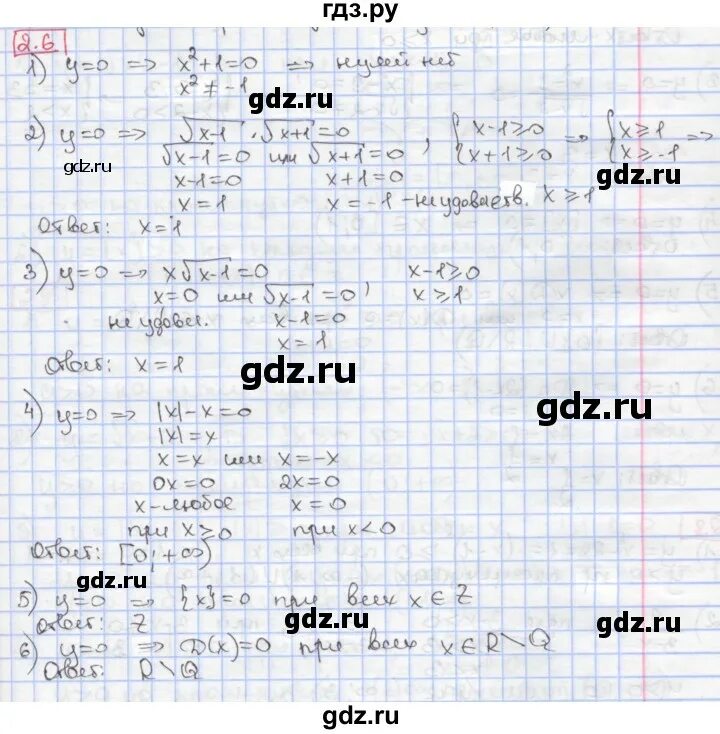 гдз.ру
2.6
1) y=0 => x²+1=0 => нулей нет
x² ≠ -1
gdz.ru
2) y=0 => √x-1 · √x+1 = 0 , { x-1≥0 => { x≥1 =>
√x-1 = 0 или √x+1 = 0 { x+1≥0 { x≥-1
gdz.ru
x-1=0 x+1=0
gdz.ru
x=1 x=-1 - не удовлетв. x≥1
Ответ: x=1
3) y=0 => x√x-1 = 0 x-1≥0
x=0 или √x-1 = 0, x≥1
не удовл. x-1=0
x=1
Ответ: x=1
gdz.ru
gdz.ru
4) y=0 => |x|-x=0
|x|=x
x=x или x=-x
0x=0 2x=0
x-любое x=0
при x≥0 при x<0
Ответ: [0; +∞)
gdz.ru
5) y=0 => {x}=0 при всех x∈Z
Ответ: Z
gdz.ru
6) y=0 => D(x)=0 при всех x∈R\Q
Ответ: R\Q
gdz.ru
gdz.ru